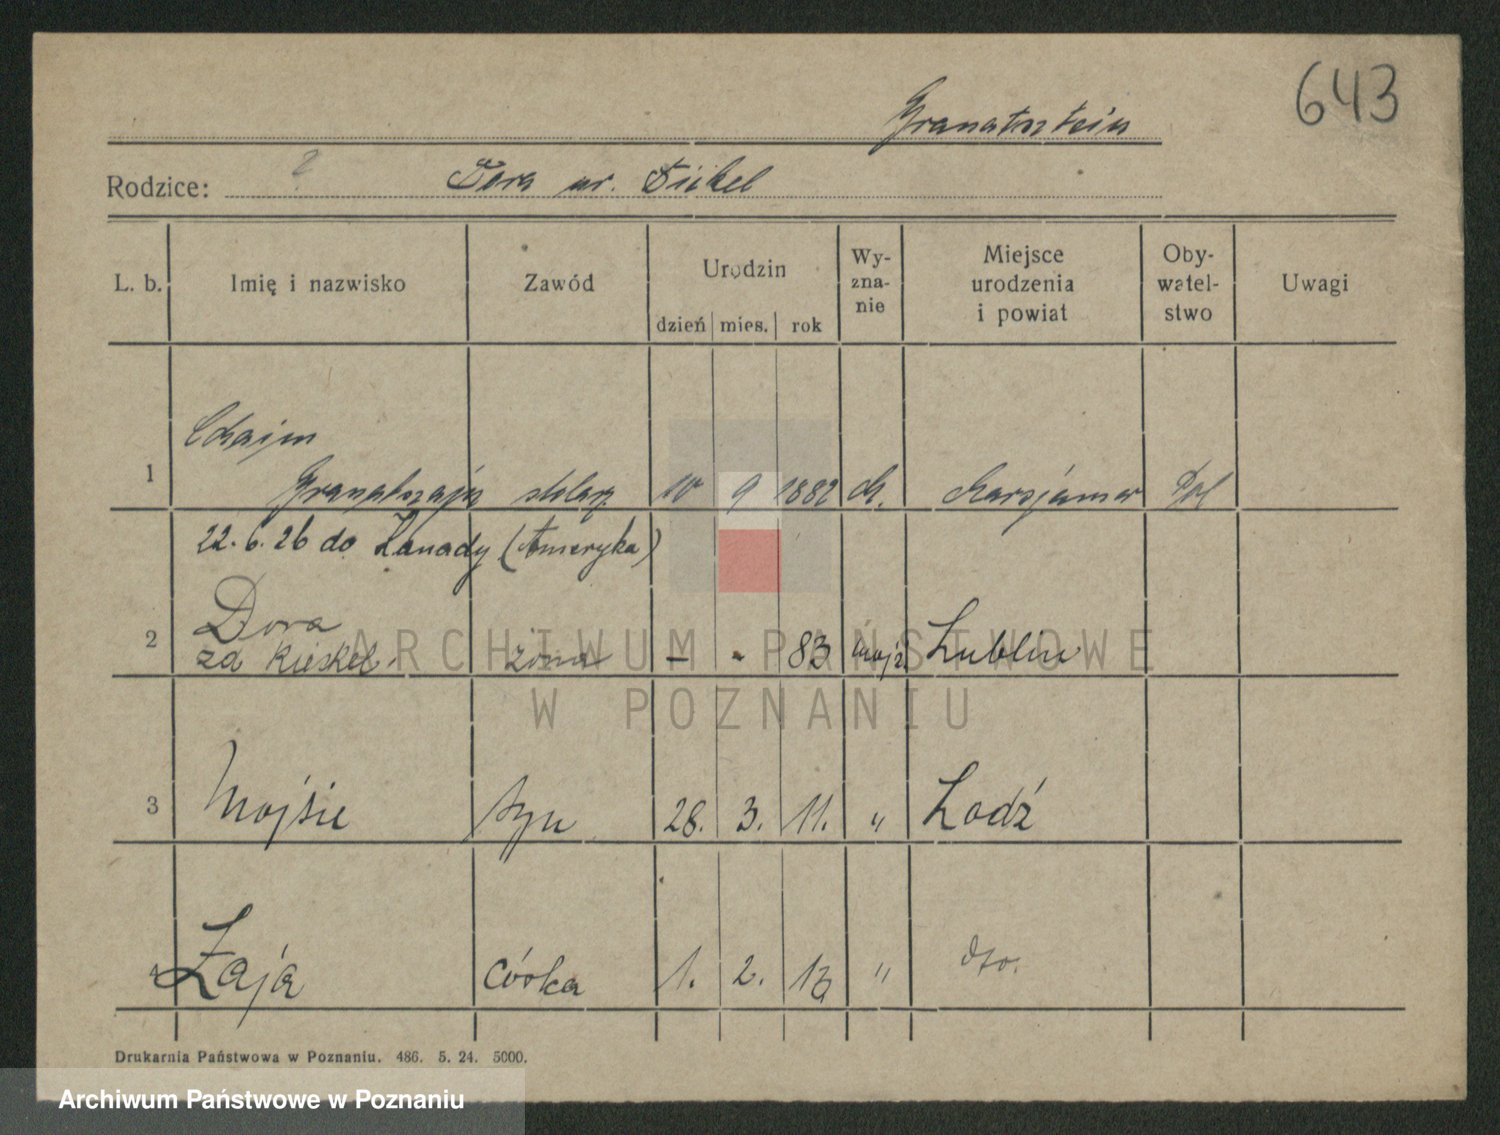 643
Granatsztein
Rodzice: ? Dora ur. Fickel
L. b. Imię i nazwisko Zawód Urodzin dzień mies. rok Wy-zna-nie Miejsce urodzenia i powiat Oby-watel-stwo Uwagi
Chaim
1 Granatszajn 10 9 1882 Pol
22.6.26 do Kanady (Ameryka)
Dora
2 za żona – - 83 mojż. Lublin
3 Mojsie syn 28. 3. 11. " Łodź
4 Łaja córka 1. 2. 13 " dto.
Drukarnia Państwowa w Poznaniu. 486. 5. 24. 5000.
ARCHIWUM PAŃSTWOWE
W POZNANIU
Archiwum Państwowe w Poznaniu